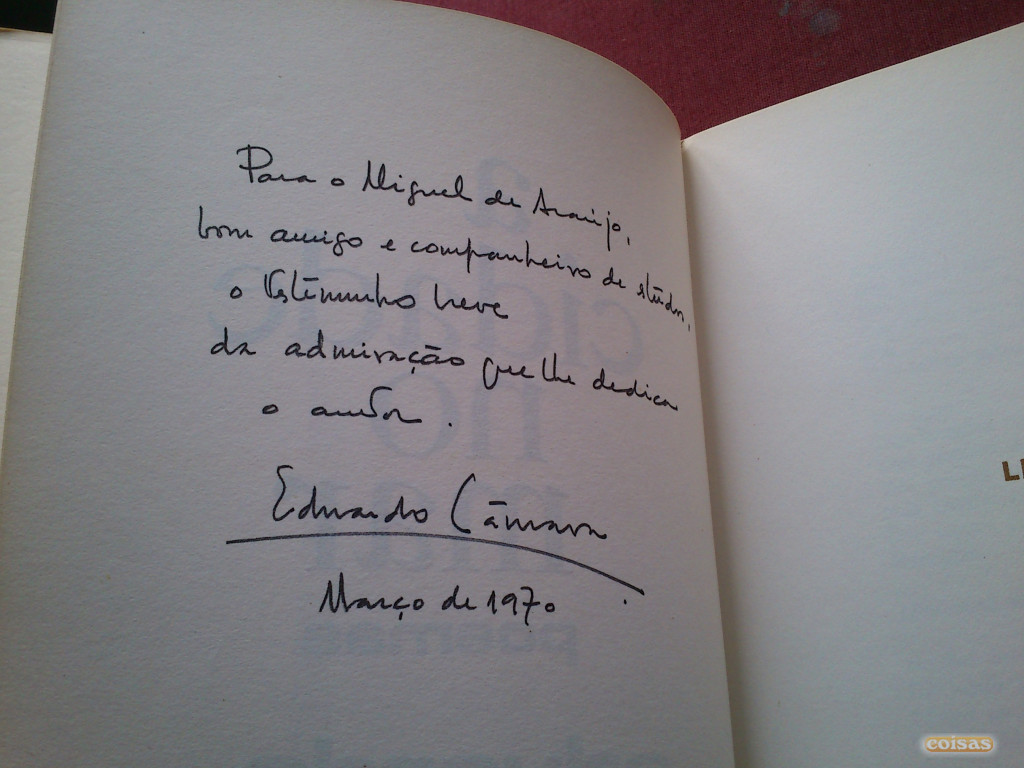 Para o Miguel de Araújo,
bom amigo e companheiro de estudos,
o testemunho breve
da admiração que lhe dedica
o autor.
Eduardo Câmara
Março de 1970
a
cidade
no
mar
poemas
coisas